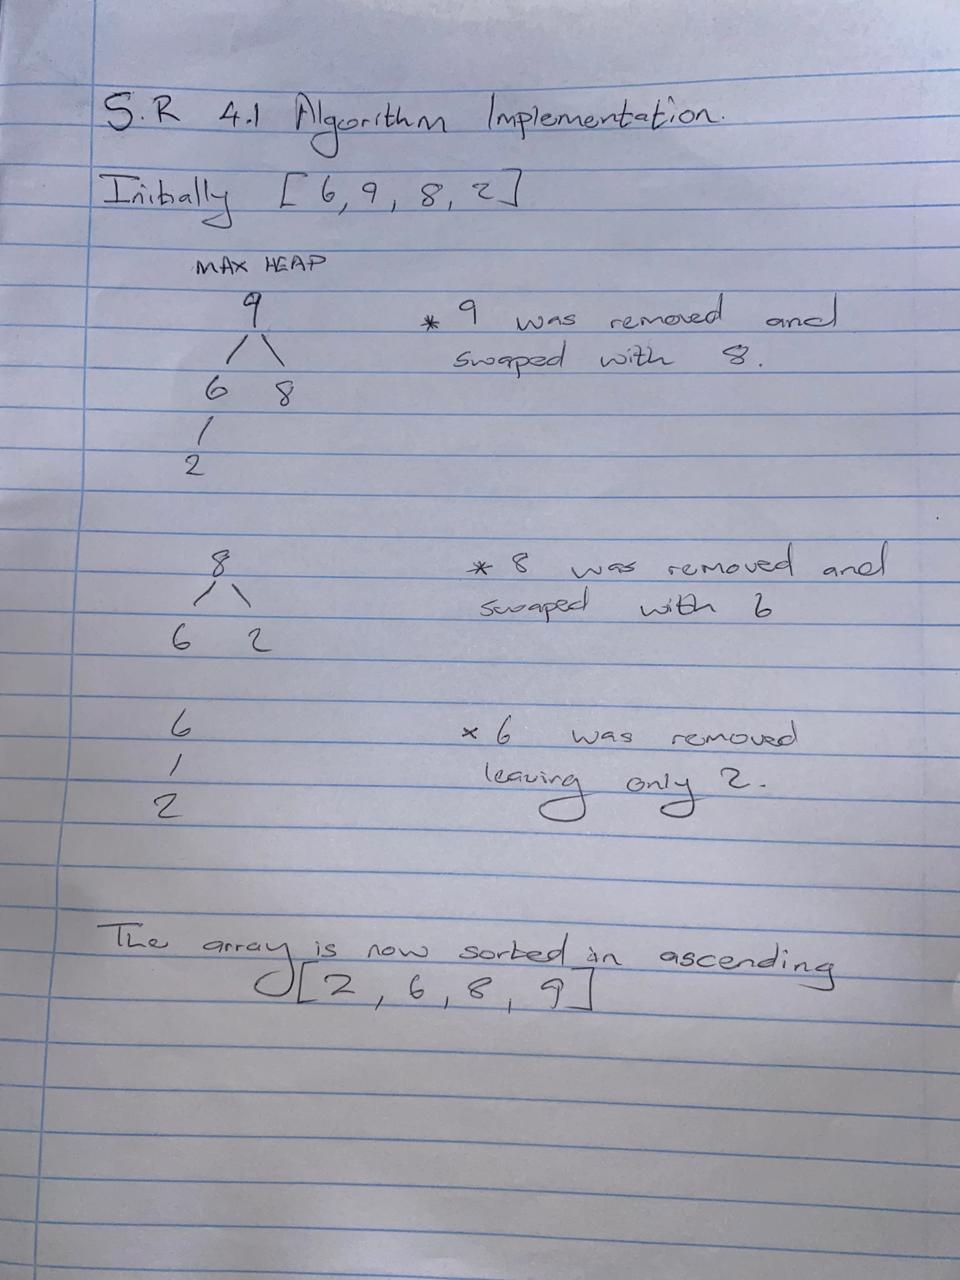 S.R 4.1 Algorithm Implementation.
Initially [6, 9, 8, 2]
MAX HEAP
9
* 9 was removed and
swaped with 8.
6 8
2
8
* 8 was removed and
swaped with 6
6 2
6
* 6 was removed
leaving only 2.
2
The array is now sorted in ascending
[2, 6, 8, 9]